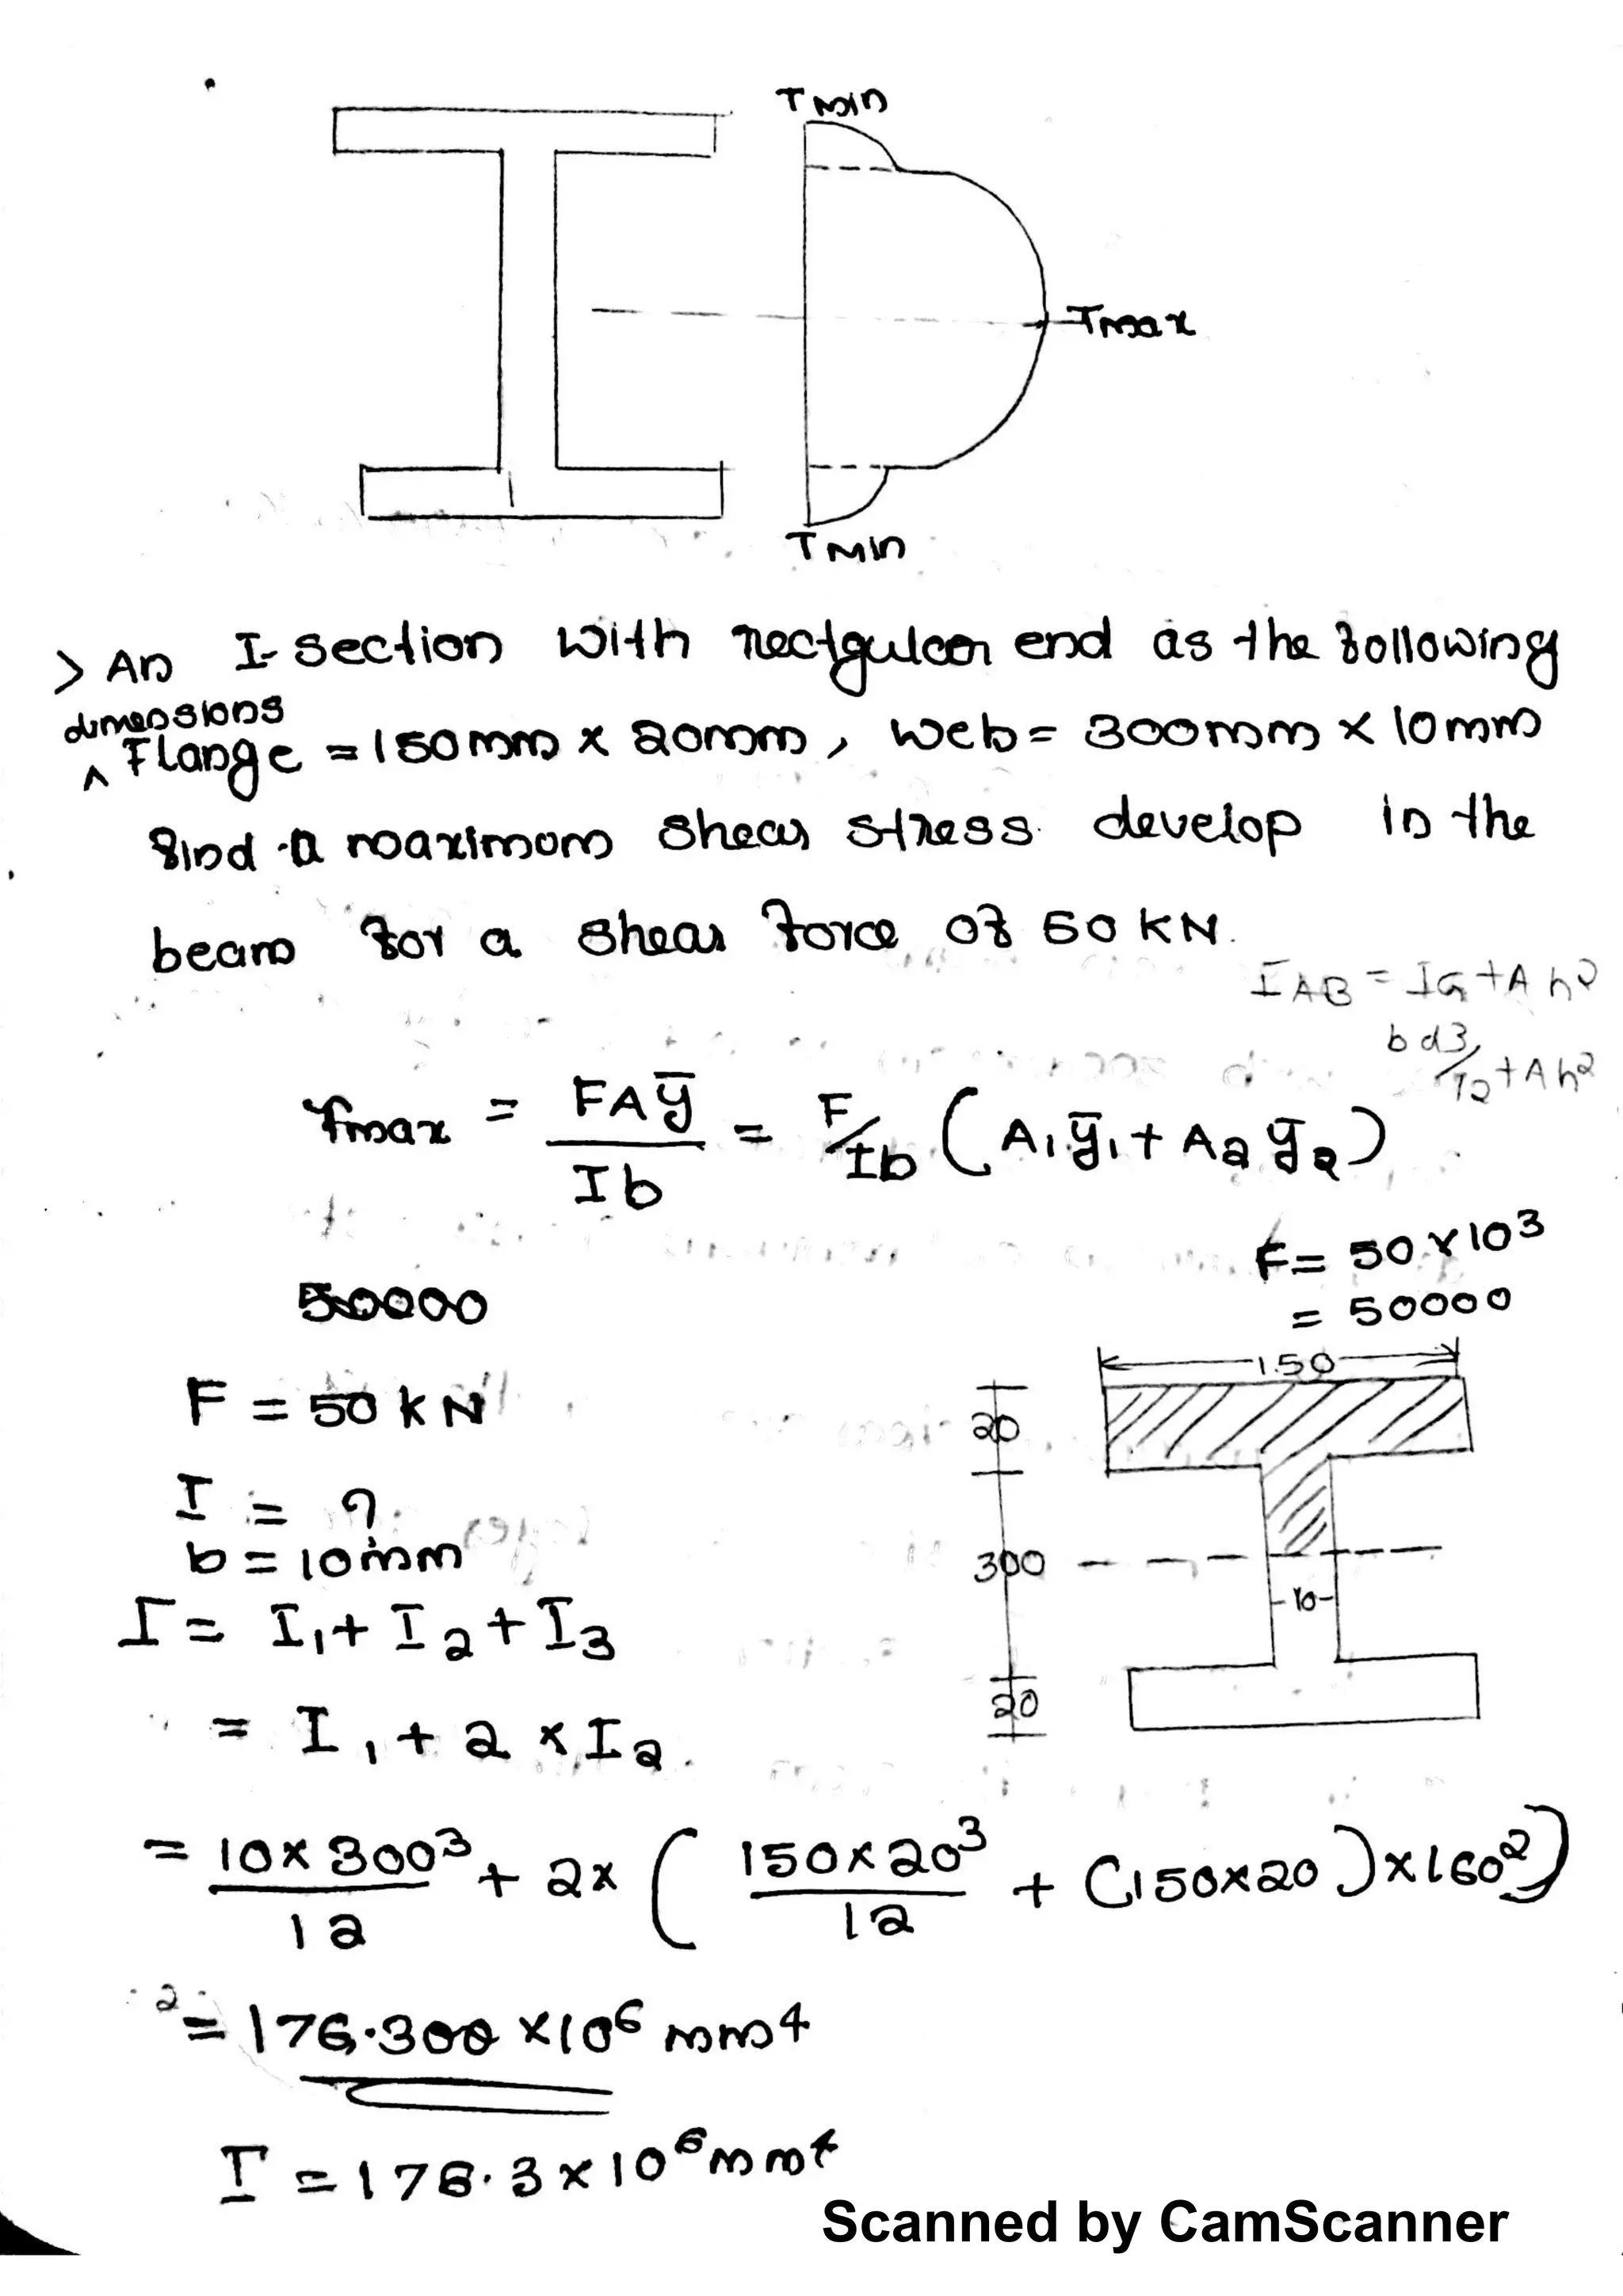 Tmin
Tmax
Tmin
> An I-section with rectgular end as the following
dimensions
^ Flange = 150mm x 20mm, Web = 300mm x 10mm
find a maximum shear stress develop in the
beam for a shear force of 50 KN.
IAB = IG + Ah²
bd3/12 + Ah²
τmax = FAȳ/Ib = F/Ib (A1ȳ1 + A2ȳ2)
F = 50 x 10³
50000
= 50000
150
F = 50 kN
20
I = ?
b = 10mm
300
10
I = I1 + I2 + I3
20
= I1 + 2 x I2
= 10 x 300³/12 + 2 x (150 x 20³/12 + (150 x 20) x 160²)
= 176.300 x 10⁶ mm4
I = 176.3 x 10⁶ mm4
Scanned by CamScanner